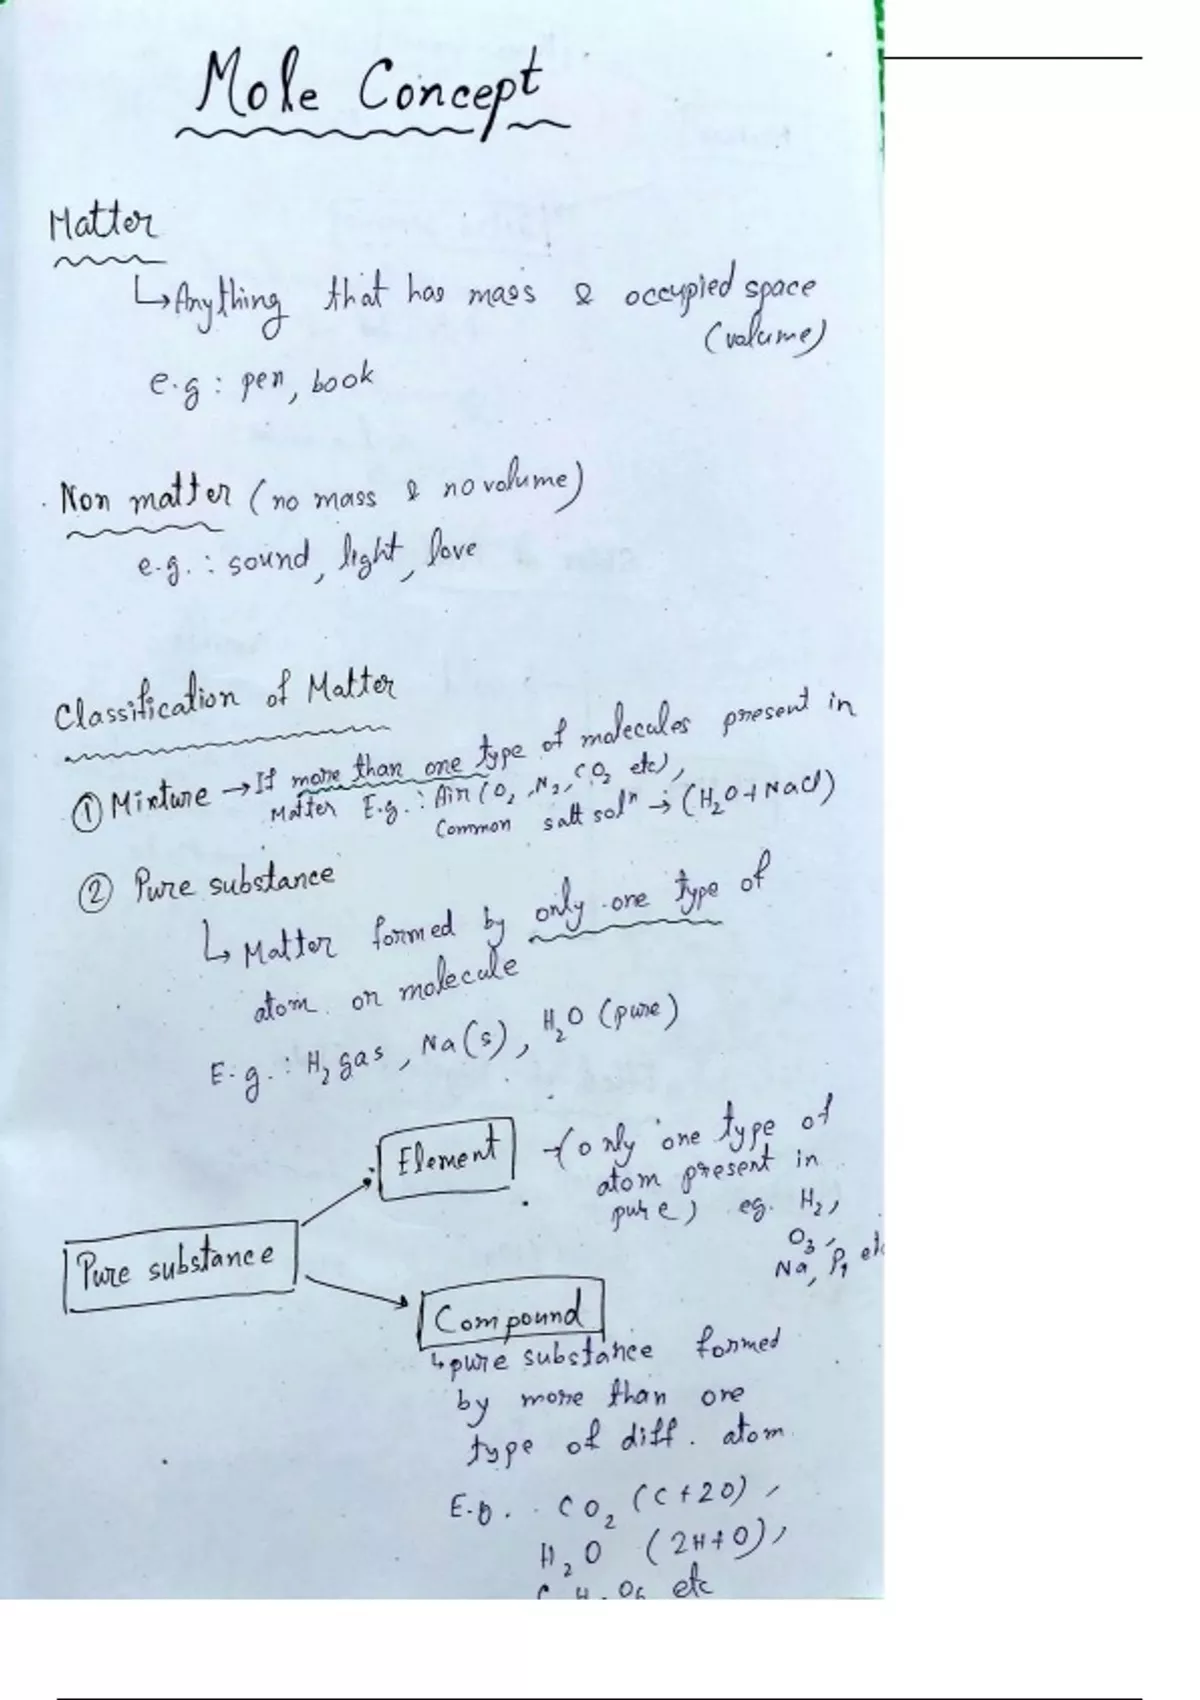 Mole Concept
Matter
↳ Anything that has mass & occupied space
(volume)
e.g : pen, book
Non matter (no mass & no volume)
e.g. : sound, light, love
Classification of Matter
① Mixture → If more than one type of molecules present in
Matter E.g. : Air (O₂, N₂, CO₂ etc),
Common salt solⁿ → (H₂O + NaCl)
② Pure substance
↳ Matter formed by only one type of
atom or molecule
E.g. : H₂ gas, Na(s), H₂O (pure)
Element → (only one type of
atom present in
pure) eg. H₂,
O₃,
Na, etc
Pure substance
Compound
↳ pure substance formed
by more than one
type of diff. atom
E.g. CO₂ (C + 2O),
H₂O (2H + O),
O₆ etc